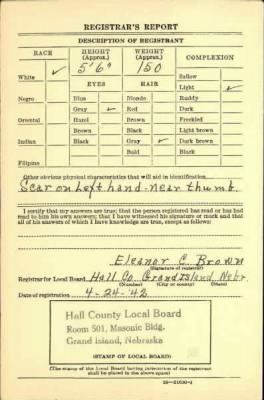 REGISTRAR'S REPORT
DESCRIPTION OF REGISTRANT
RACE HEIGHT (Approx.) WEIGHT (Approx.) COMPLEXION
5' 6" 150
White ✓ Sallow
EYES HAIR Light ✓
Negro Blue Blonde Ruddy
Gray ✓ Red Dark
Oriental Hazel Brown Freckled
Brown Black Light brown
Indian Black Gray ✓ Dark brown
Bald Black
Filipino
Other obvious physical characteristics that will aid in identification
Scar on Left hand - near thumb.
I certify that my answers are true; that the person registered has read or has had
read to him his own answers; that I have witnessed his signature or mark and that
all of his answers of which I have knowledge are true, except as follows:
Eleanor C. Brown
(Signature of registrar)
Registrar for Local Board Hall Co. Grand Island Nebr.
(Number) (City or county) (State)
Date of registration 4-24-42
Hall County Local Board
Room 501, Masonic Bldg.
Grand Island, Nebraska
(STAMP OF LOCAL BOARD)
(The stamp of the Local Board having jurisdiction of the registrant
shall be placed in the above space)